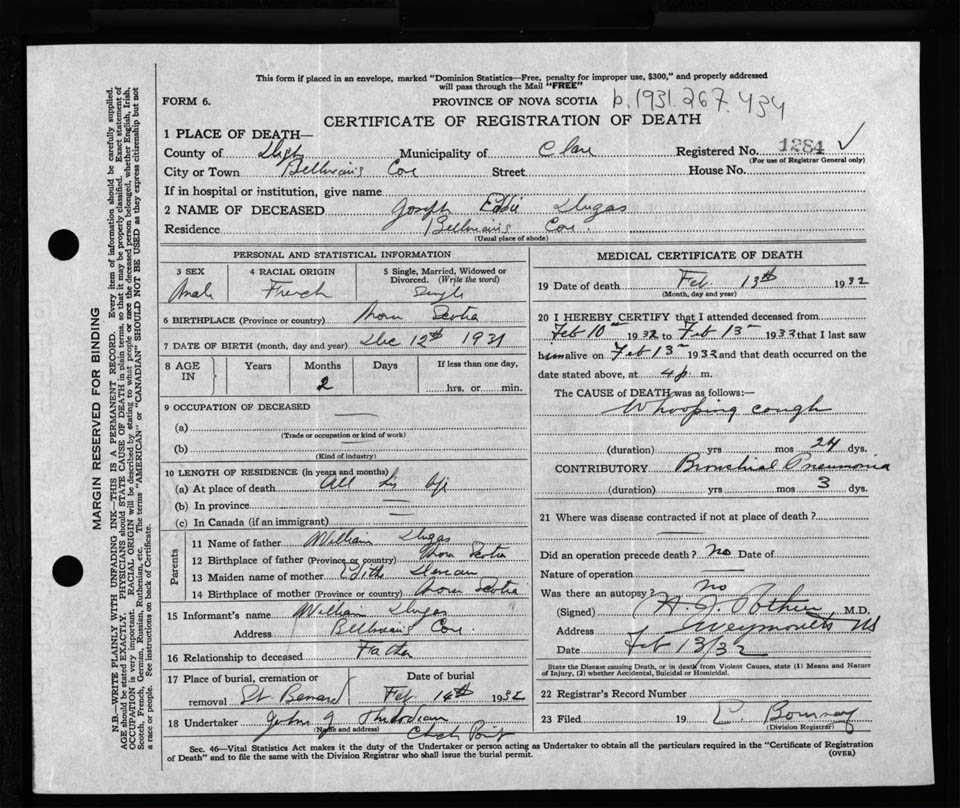 This form if placed in an envelope, marked "Dominion Statistics—Free, penalty for improper use, $300," and properly addressed
will pass through the Mail "FREE"
FORM 6.
PROVINCE OF NOVA SCOTIA b.1931.267.434
CERTIFICATE OF REGISTRATION OF DEATH
1 PLACE OF DEATH—
County of Digby Municipality of Clare Registered No. 1284
(For use of Registrar General only)
City or Town Belliveau's Cove Street House No.
If in hospital or institution, give name
2 NAME OF DECEASED Joseph Eddie Dugas
Residence Belliveau's Cove.
(Usual place of abode)
PERSONAL AND STATISTICAL INFORMATION
3 SEX
Male
4 RACIAL ORIGIN
French
5 Single, Married, Widowed or
Divorced. (Write the word)
Single
6 BIRTHPLACE (Province or country) Nova Scotia
7 DATE OF BIRTH (month, day and year) Dec 12th 1931
8 AGE
IN
Years
Months
2
Days
If less than one day,
hrs. or min.
9 OCCUPATION OF DECEASED
(a)
(Trade or occupation or kind of work)
(b)
(Kind of industry)
10 LENGTH OF RESIDENCE (in years and months)
(a) At place of death All his life
(b) In province
(c) In Canada (if an immigrant)
Parents
11 Name of father William Dugas
12 Birthplace of father (Province or country) Nova Scotia
13 Maiden name of mother Edith
14 Birthplace of mother (Province or country) Nova Scotia
15 Informant's name William Dugas
Address Belliveau's Cove.
16 Relationship to deceased Father
17 Place of burial, cremation or
removal St. Bernard
Date of burial
Feb 14th 1932
18 Undertaker John J Thibodeau
(Name and address) Church Point
MEDICAL CERTIFICATE OF DEATH
19 Date of death Feb 13th 1932
(Month, day and year)
20 I HEREBY CERTIFY that I attended deceased from
Feb 10 1932 to Feb 13 1932 that I last saw
him alive on Feb 13 1932 and that death occurred on the
date stated above, at 4 p. m.
The CAUSE of DEATH was as follows:—
Whooping cough
(duration) yrs mos 24 dys.
CONTRIBUTORY Bronchial Pneumonia
(duration) yrs mos 3 dys.
21 Where was disease contracted if not at place of death?
Did an operation precede death? No Date of
Nature of operation
Was there an autopsy? no
(Signed) H. J. Pothier, M.D.
Address Weymouth NS
Date Feb 13/32
State the Disease causing Death, or in death from Violent Causes, state (1) Means and Nature
of Injury, (2) whether Accidental, Suicidal or Homicidal.
22 Registrar's Record Number
23 Filed 19
(Division Registrar)
Sec. 46—Vital Statistics Act makes it the duty of the Undertaker or person acting as Undertaker to obtain all the particulars required in the "Certificate of Registration
of Death" and to file the same with the Division Registrar who shall issue the burial permit.
(OVER)
MARGIN RESERVED FOR BINDING
N.B.—WRITE PLAINLY WITH UNFADING INK—THIS IS A PERMANENT RECORD. Every item of information should be carefully supplied.
AGE should be stated EXACTLY. PHYSICIANS should STATE CAUSE OF DEATH in plain terms, so that it may be properly classified. Exact statement of
OCCUPATION is very important. RACIAL ORIGIN will be described by stating to what people or race the deceased person belonged, whether English, Irish,
Scotch, French, German, Russian, Ruthenian, etc. The terms "AMERICAN" or "CANADIAN" SHOULD NOT BE USED as they express citizenship but not
a race or people. See instructions on back of Certificate.